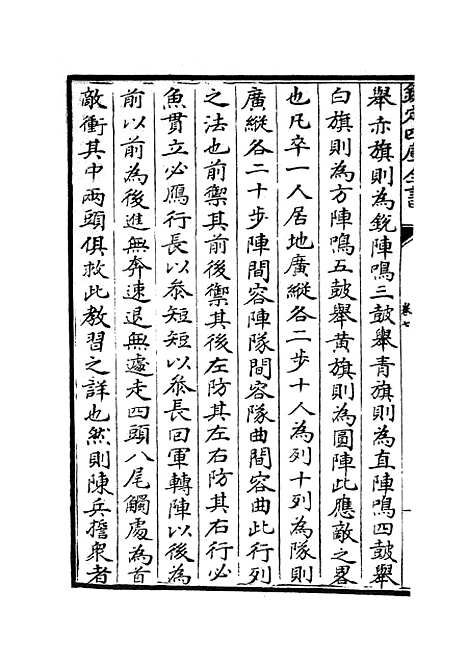 欽定四庫全書
卷七
舉赤旗則為銳陣鳴三鼓舉青旗則為直陣鳴四鼓舉
白旗則為方陣鳴五鼓舉黃旗則為圓陣此應敵之畧
也凡卒一人居地廣縱各二步十人為列十列為隊則
廣縱各二十步陣間容陣隊間容隊曲間容曲此行列
之法也前禦其前後禦其後左防其左右防其右行必
魚貫立必鴈行長以叅短短以叅長回軍轉陣以後為
前以前為後進無奔速退無遽走四頭八尾觸處為首
敵衝其中兩頭俱救此教習之詳也然則陳兵誓眾者